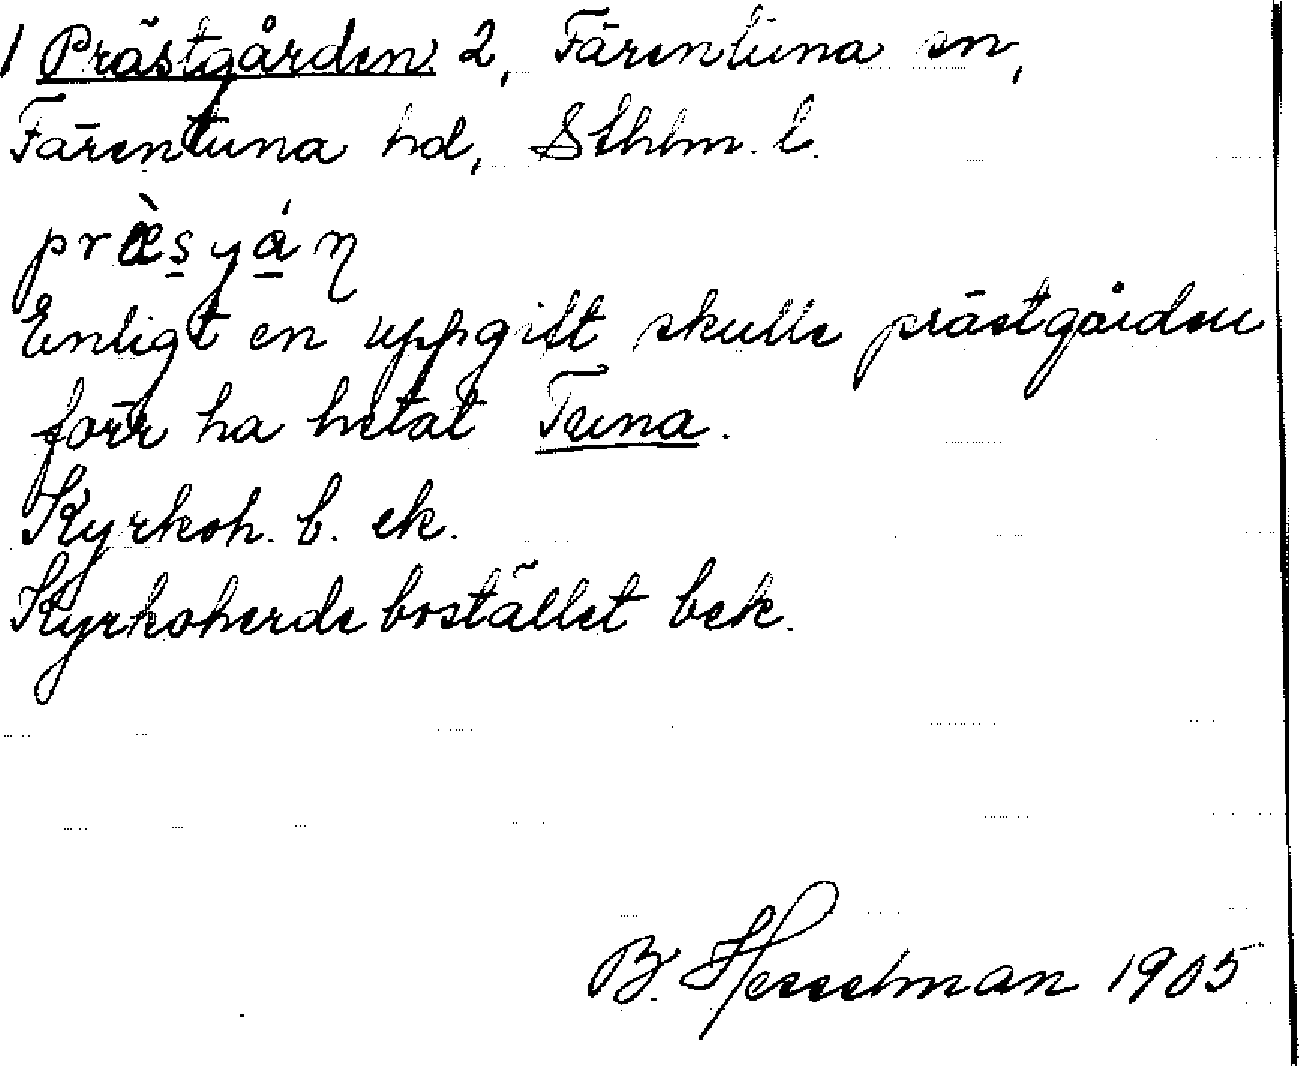 1 Prästgården 2, Färentuna sn,
Färentuna hd, Sthlm. l.
præ̀syáη
Enligt en uppgift skulle prästgården
förr ha hetat Tuna.
Kyrkoh. b. ek.
Kyrkoherdebostället bek.
B. Hesselman 1905